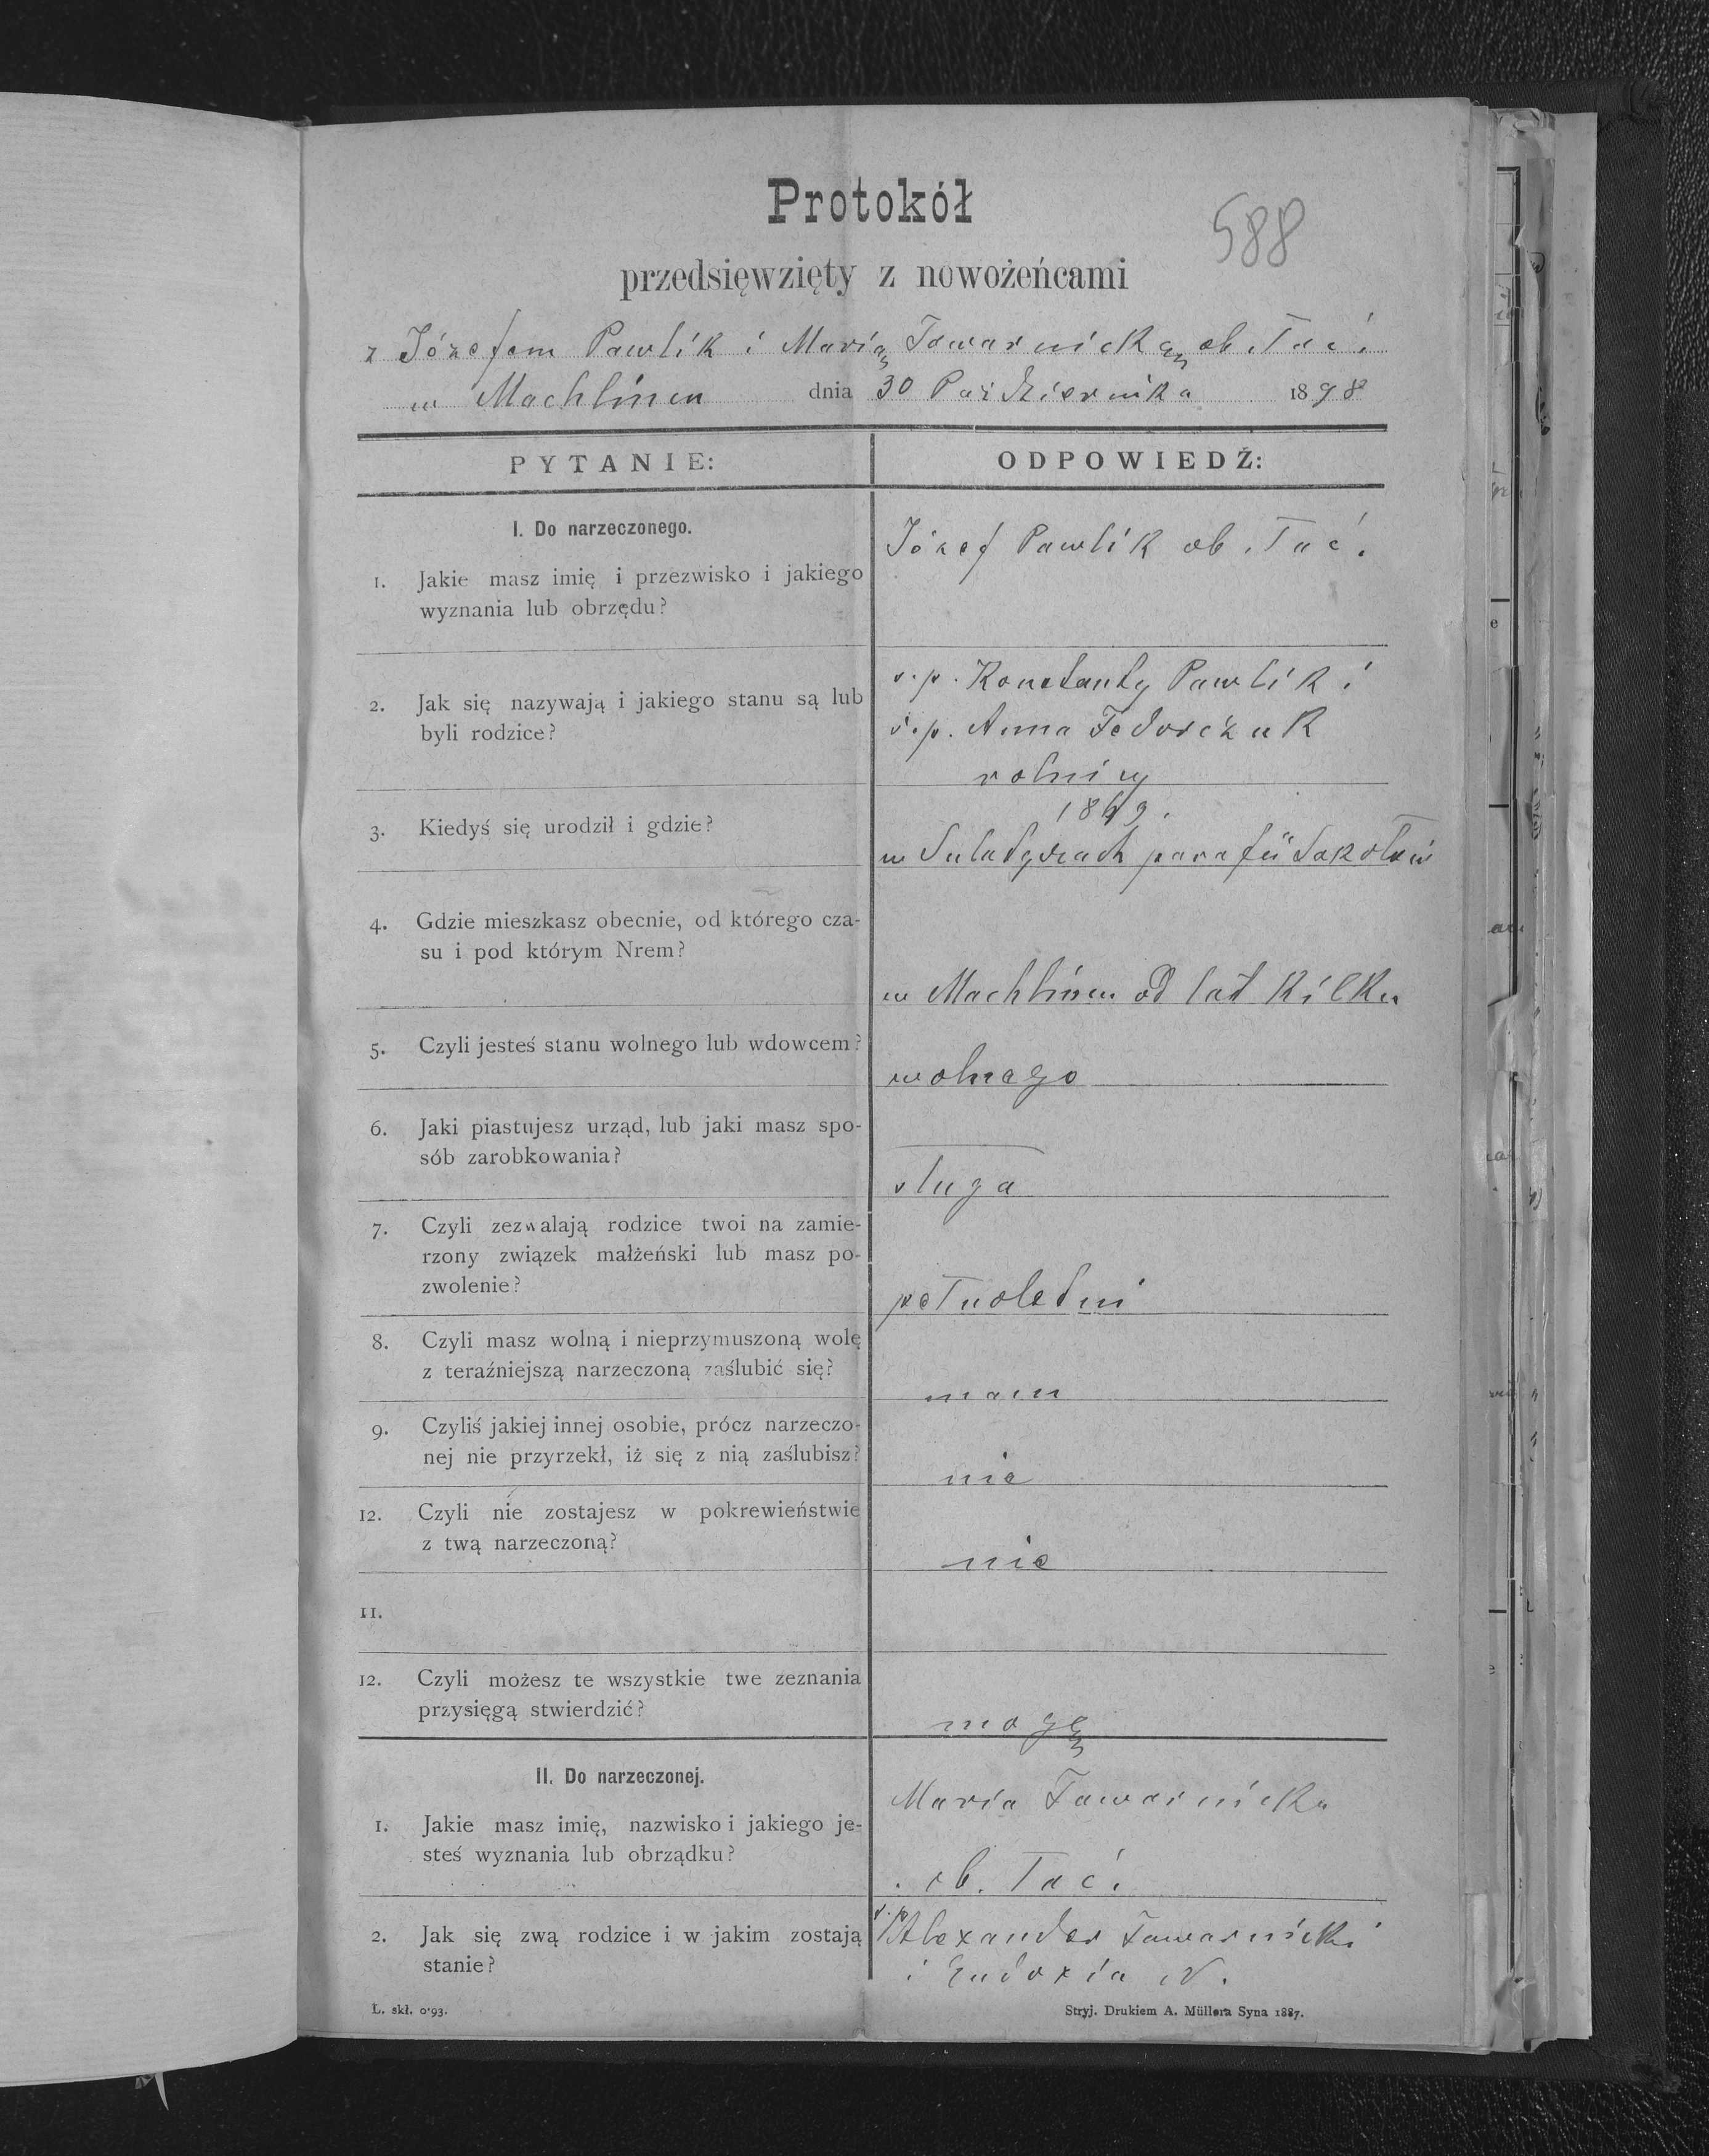 Protokół
588
przedsięwzięty z nowożeńcami
z Józefem Pawlik i Marią Tawarnicką ob. łać.
w Machlińcu dnia 30 Października 1898
PYTANIE:
ODPOWIEDŹ:
I. Do narzeczonego.
1. Jakie masz imię i przezwisko i jakiego
wyznania lub obrzędu?
Józef Pawlik ob. łać.
2. Jak się nazywają i jakiego stanu są lub
byli rodzice?
ś.p. Konstanty Pawlik i
ś.p. Anna Fedorczuk
rolnicy
3. Kiedyś się urodził i gdzie?
1869.
w parafii
4. Gdzie mieszkasz obecnie, od którego cza-
su i pod którym Nrem?
w Machlińcu od lat kilku
5. Czyli jesteś stanu wolnego lub wdowcem?
wolnego
6. Jaki piastujesz urząd, lub jaki masz spo-
sób zarobkowania?
sługa
7. Czyli zezwalają rodzice twoi na zamie-
rzony związek małżeński lub masz po-
zwolenie?
pełnoletni
8. Czyli masz wolną i nieprzymuszoną wolę
z teraźniejszą narzeczoną zaślubić się?
mam
9. Czyliś jakiej innej osobie, prócz narzeczo-
nej nie przyrzekł, iż się z nią zaślubisz?
nie
12. Czyli nie zostajesz w pokrewieństwie
z twą narzeczoną?
nie
11.
12. Czyli możesz te wszystkie twe zeznania
przysięgą stwierdzić?
mogę
II. Do narzeczonej.
1. Jakie masz imię, nazwisko i jakiego je-
steś wyznania lub obrządku?
Maria Tawarnicka
ob. łać.
2. Jak się zwą rodzice i w jakim zostają
stanie?
ś.p. Alexander Tawarnicki
i Eudoxia N.
L. skł. 0·93.
Stryj. Drukiem A. Müllera Syna 1887.